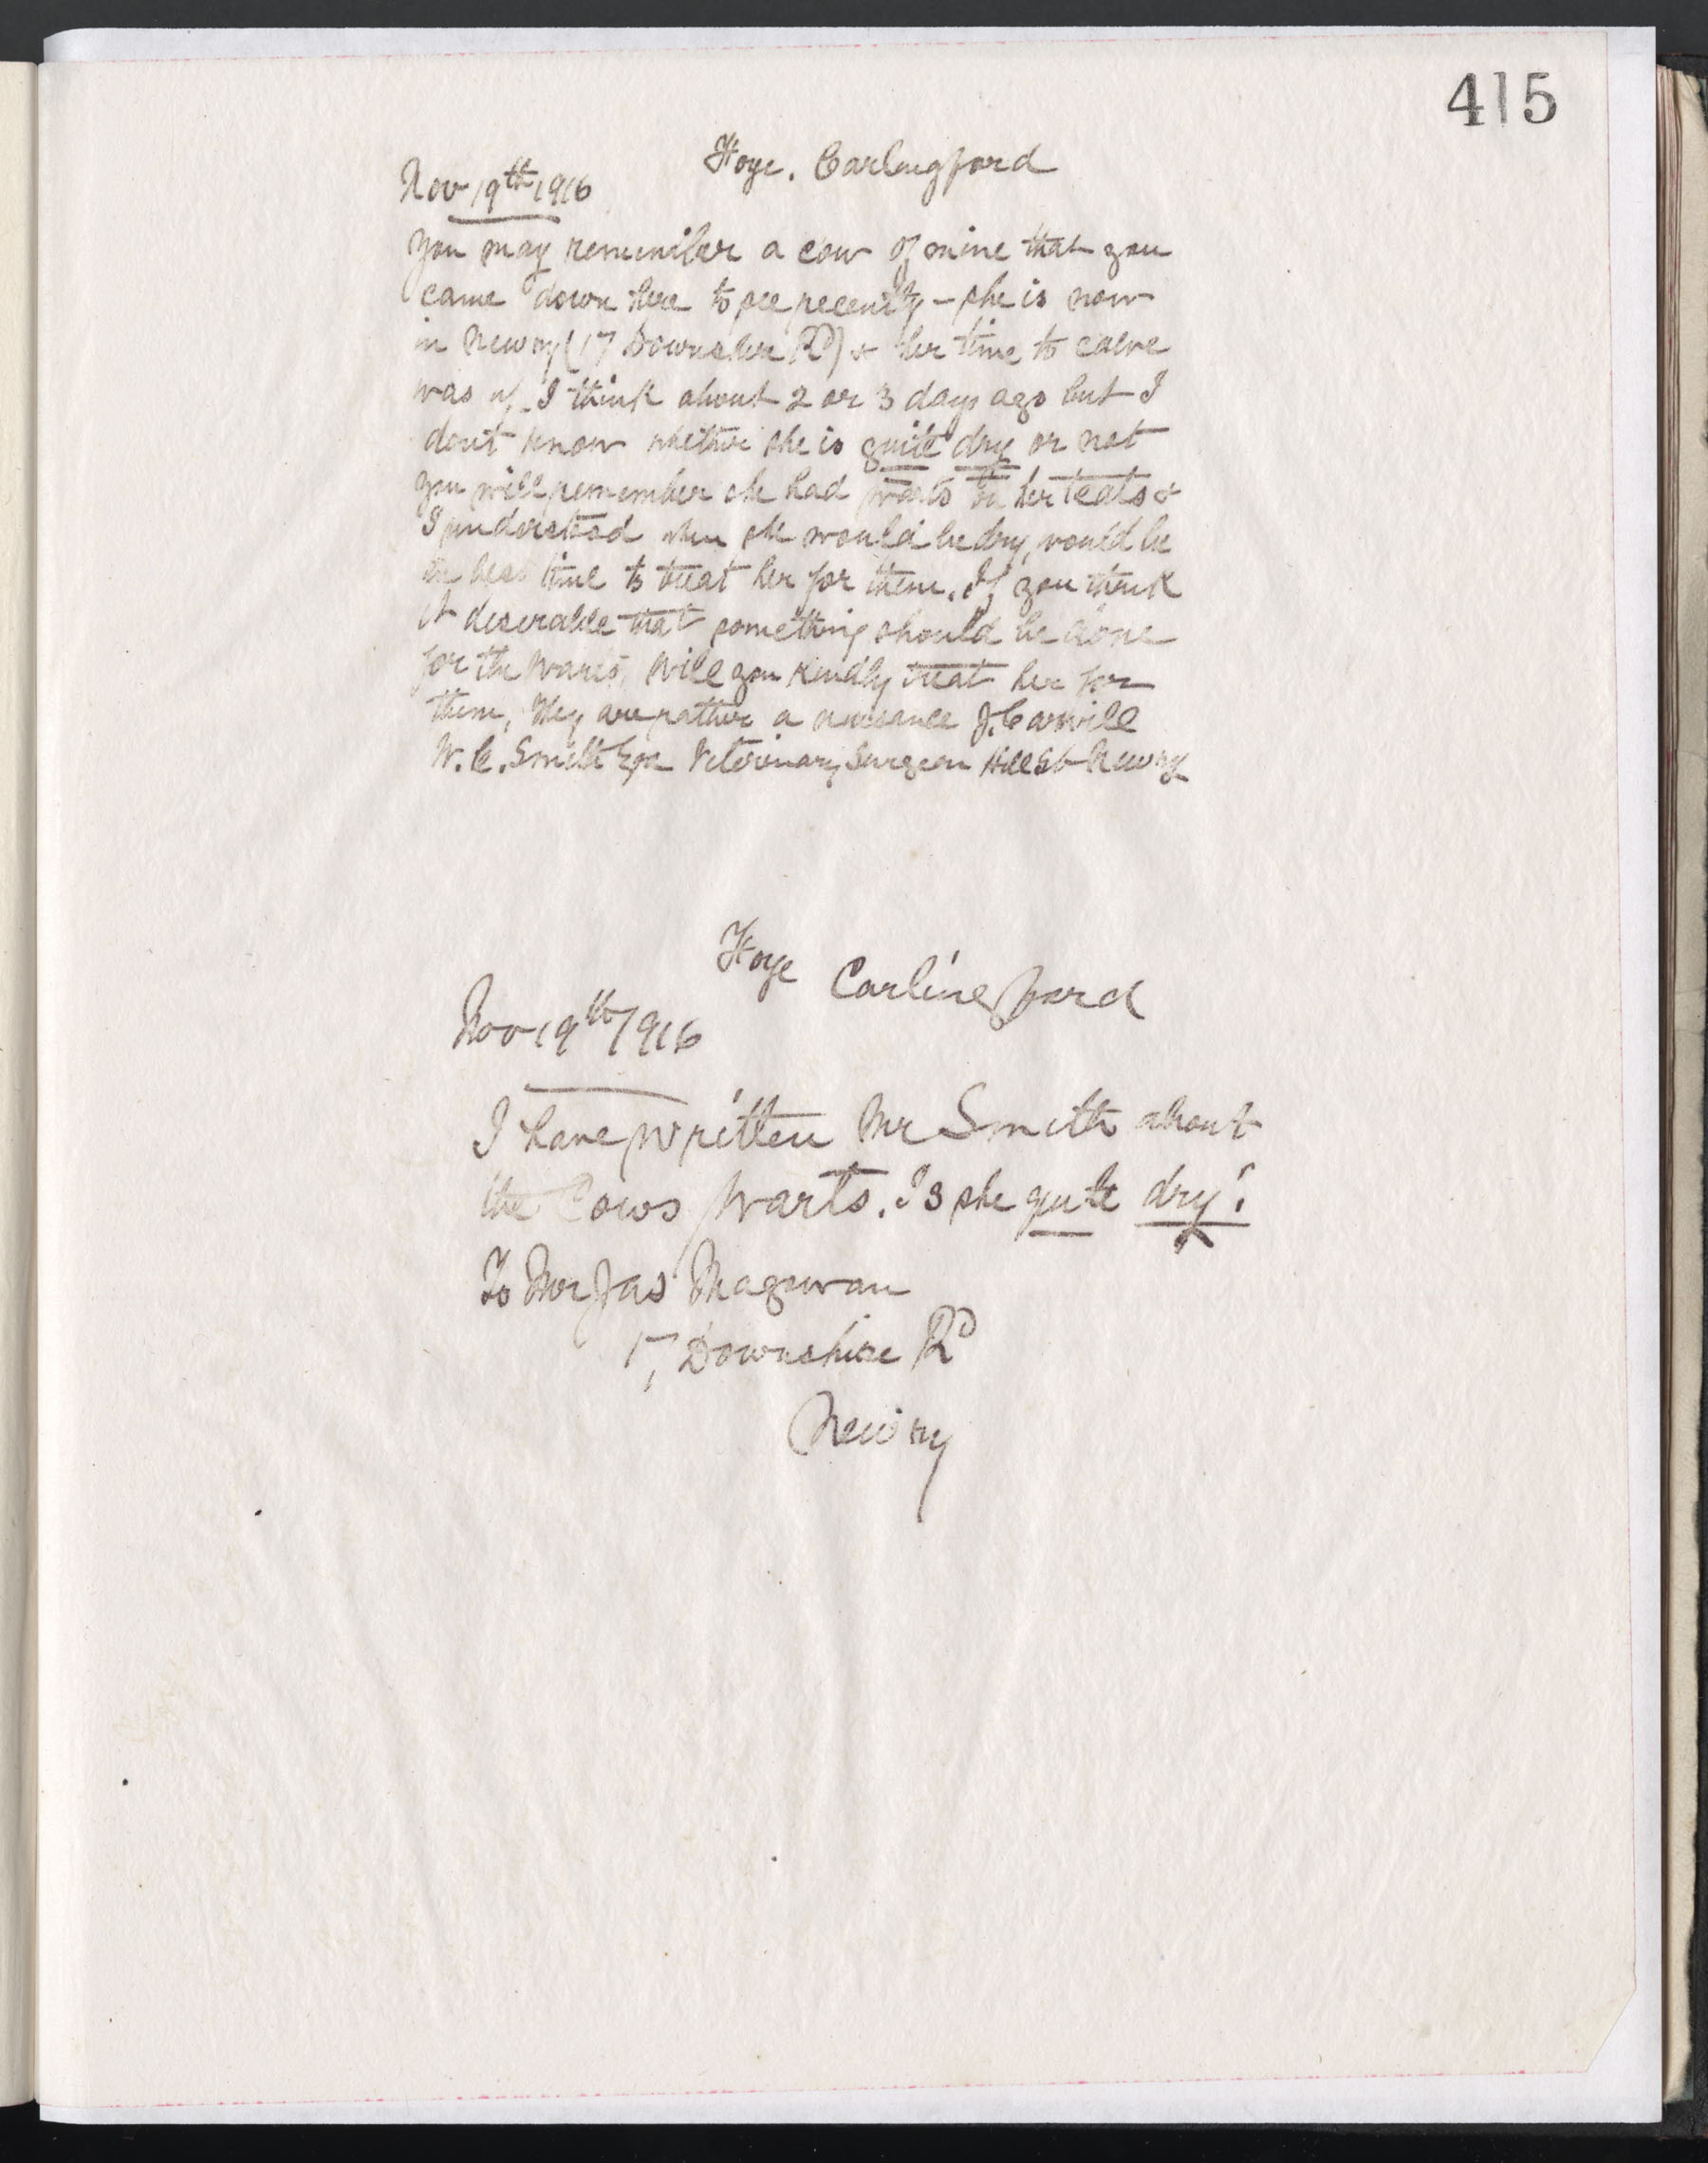 415
Hoge. Carlingford
Nov 19th 1916
You may remember a cow of mine that you
came down here to see recently - she is now
in Newry (17 Downshire Rd) & her time to calve
was up I think about 2 or 3 days ago but I
dont know whether she is quite dry or not
you will remember she had warts on her teats &
I understood when she would be dry, would be
the best time to treat her for them. If you think
it desirable that something should be done
for the Warts, Will you kindly treat her for
them, they are rather a nuisance J. Carvill
W. C. Smith Esq Veterinary Surgeon Hill St Newry
Hoge Carlingford
Nov 19th 1916
I have written Mr Smith about
the Cows Warts. Is she quite dry?
To Mr Jas Magowan
17, Downshire Rd
Newry